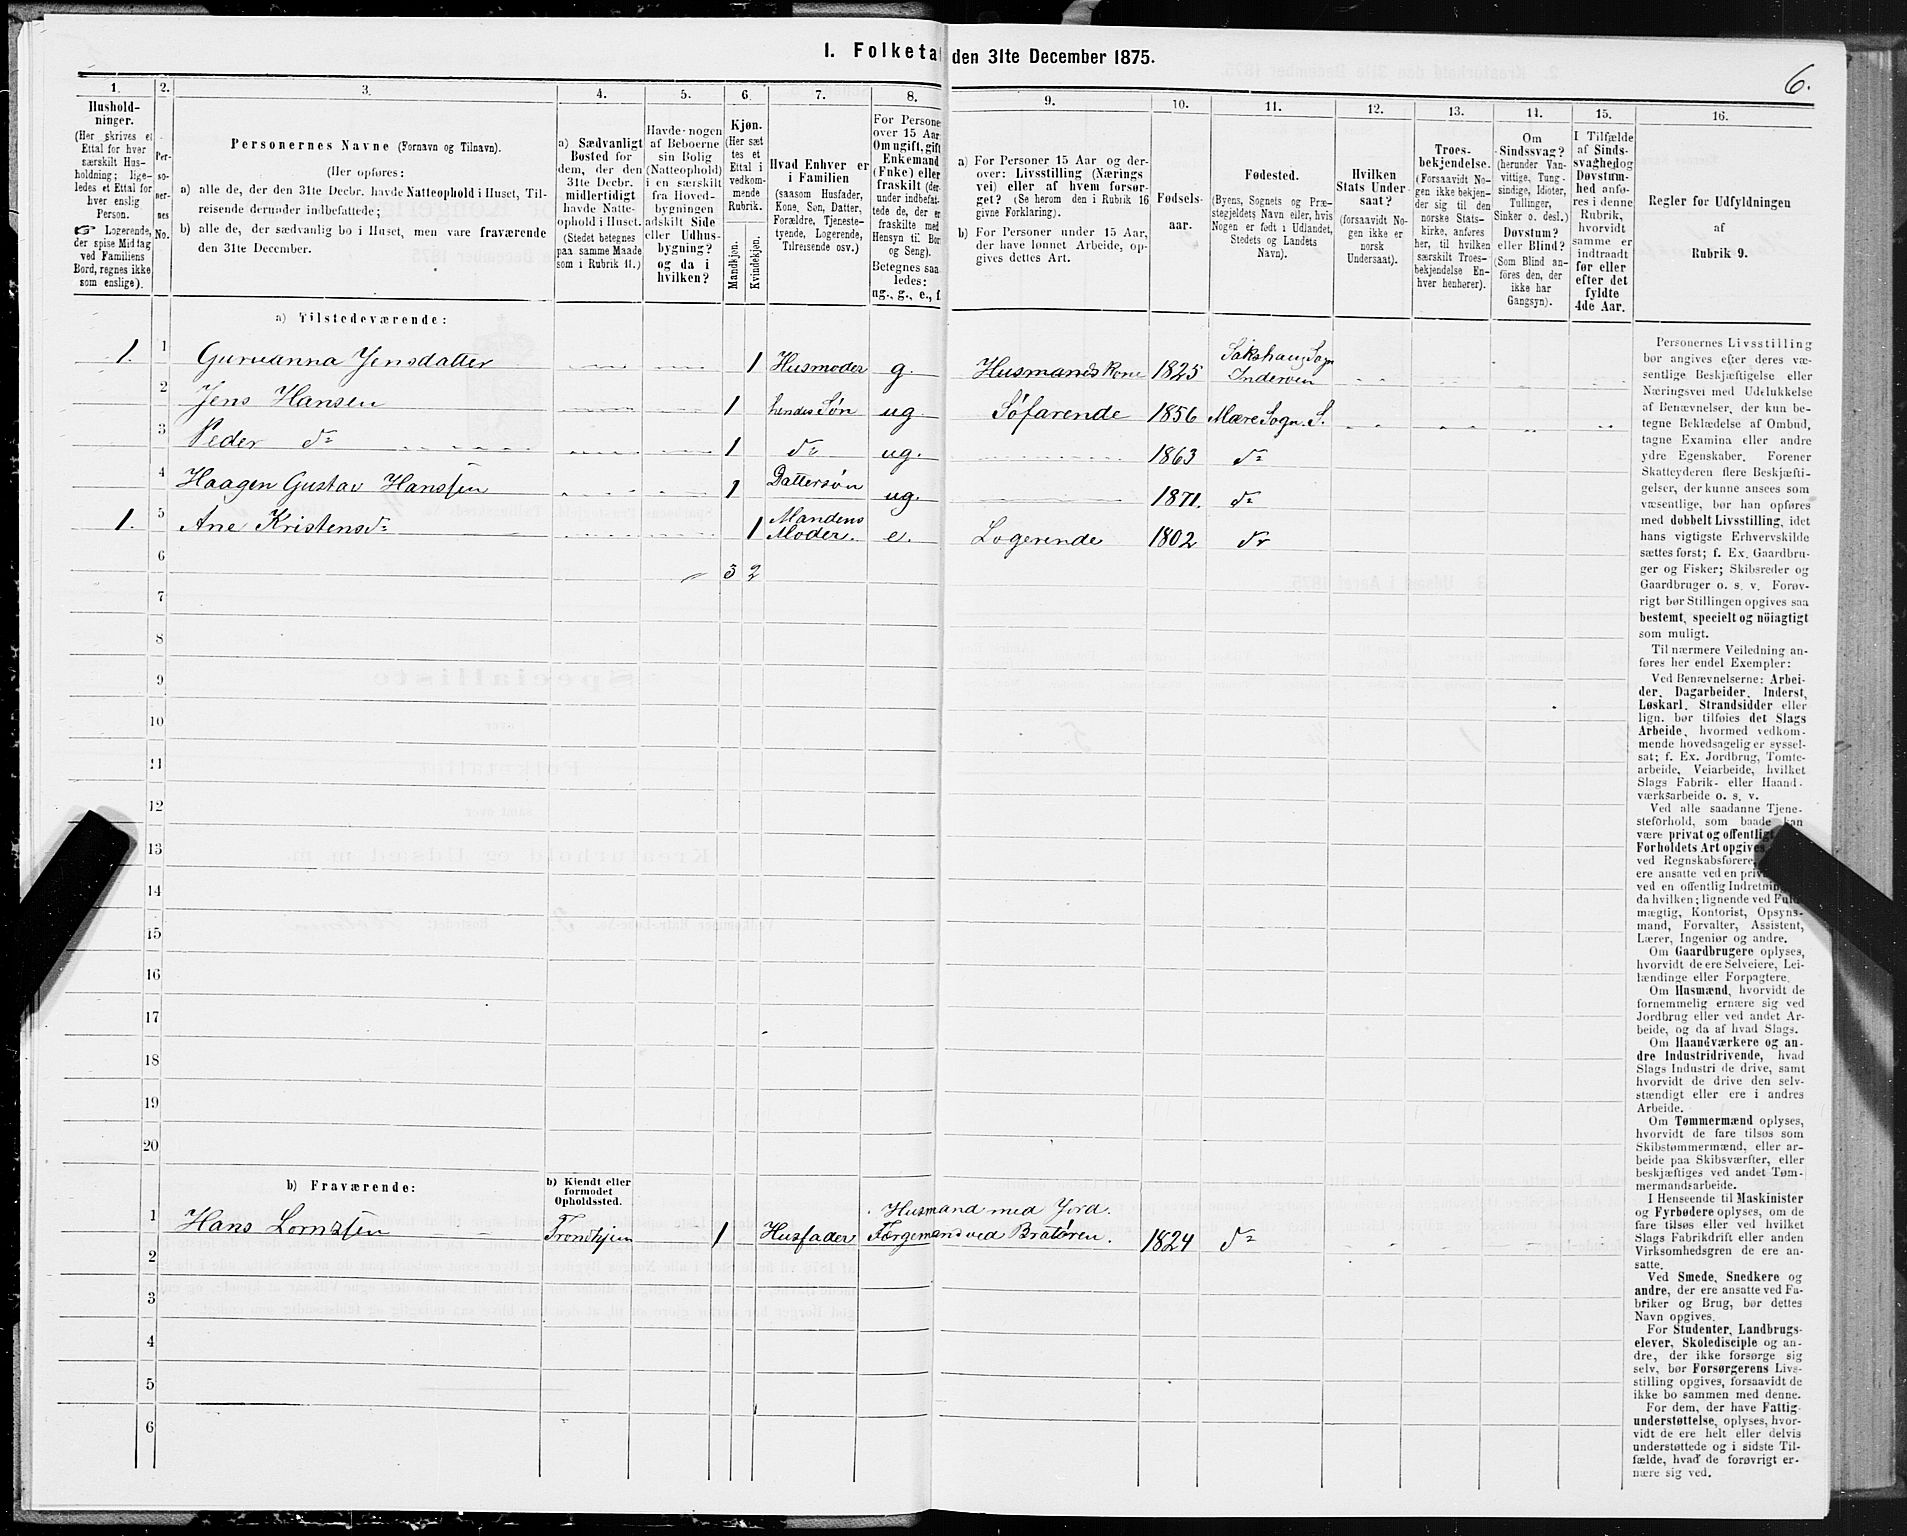 I. Folketal den 31te December 1875.
6.
1. 2. 3. 4. 5. 6. 7. 8. 9. 10. 11. 12. 13. 14. 15. 16.
Hushold-
ninger.
(Her skrives et
Ettal for hver
særskilt Hus-
holdning; lige-
ledes et Ettal for
hver enslig
Person.
☞ Logerende,
der spise Middag
ved Familiens
Bord, regnes ikke
som enslige).
Per-
so-
ner-
nes
No.
Personernes Navne (Fornavn og Tilnavn).
(Her opføres:
a) alle de, der den 31te Decbr. havde Natteophold i Huset, Til-
reisende derunder indbefattede;
b) alle de, der sædvanlig bo i Huset, men vare fraværende
den 31te December.
a) Sædvanligt
Bosted for
dem, der den
31te Decbr.
midlertidigt
havde Natte-
ophold i Huset.
(Stedet betegnes
paa samme Maade
som i Rubrik 11.)
Havde nogen
af Beboerne
sin Bolig
(Natteophold)
i en særskilt
fra Hoved-
bygningen
adskilt Side
eller Udhus-
bygning?
og da i
hvilken?
Kjøn.
(Her sæt
tes et
Ettal i
vedkom-
mende
Rubrik.
Mandkjøn.
Kvindekjøn.
Hvad Enhver er
i Familien
(saasom Husfader,
Kone, Søn, Datter,
Forældre, Tjeneste-
tyende, Logerende,
Tilreisende osv.)
For Persone
over 15 Aar
Om ugift, gift
Enkemand
(Enke) eller
fraskilt (der-
under indbefat-
tede de, der er
fraskilte med
Hensyn til Bor
og Seng).
Betegnes saa
ledes:
ug., g., e., f.
a) For Personer 15 Aar og der-
over: Livsstilling (Nærings
vei) eller af hvem forsør-
get? (Se herom den i Rubrik 16
givne Forklaring).
b) For Personer under 15 Aar,
der have lønnet Arbeide, op-
gives dettes Art.
Fødsels-
aar.
Fødested.
(Byens, Sognets og Præ-
stegjeldets Navn eller, hvis
Nogen er født i Udlandet,
Stedets og Landets
Navn).
Hvilken
Stats Under-
saat?
(forsaavidt No-
gen ikke er
norsk
Undersaat).
Troes-
bekjendelse.
(Forsaavidt No-
gen ikke bekjen-
der sig til den
norske Stats-
kirke, anføres
her, til hvilken
særskilt Troes-
bekjendelse En-
hver henhører).
Om
Sindssvag?
(herunder Van-
vittige, Tung-
sindige, Idioter,
Tullinger,
Sinker o. desl.)
Døvstum?
eller Blind?
(Som Blind an-
føres den, der
ikke har
Gangsyn).
I Tilfælde
af Sinds-
svaghed og
Døvstum-
hed anfø-
res i denne
Rubrik,
hvorvidt
samme er
indtraadt
før eller
efter det
fyldte
4de Aar.
Regler for Udfyldningen
af
Rubrik 9.
a) Tilstedeværende:
1. 1 Gurianna Jensdatter 1 Husmoder g. Husmands Kone 1825 Sakshaug Sogn
Inderøen
2 Jens Hansen 1 hendes Søn ug Søfarende 1856 Mære Sogn. S.
3 Peder do 1 do ug. 1863 do
4 Haagen Gustav Hanssen 1 Dattersøn ug. 1871. do
1. 5 Ane Kristensdr 1 Mandens
Moder. e. Logerende 1802 do
6 3 2
7
8
9
10
11
12
13
14
15
16
17
18
19
20
b) Fraværende:
b) Kiendt eller
formodet
Opholdssted.
1 Hans Lorntsen Trondhjem 1 Husfader Husmand med Jord.
Færgemand ved Bratøren. 1824 do
2
3
4
5
6
Personernes Livsstilling
bør angives efter deres væ-
sentlige Beskjæftigelse eller
Næringsvei med Udelukkelse
af Benævnelser, der kun be-
tegne Beklædelse af Ombud,
tagne Examina eller andre
ydre Egenskaber. Forener
Skatteyderen flere Beskjæfti-
gelser, der kunne ansees som
væsentlige, bør han opføres
med dobbelt Livsstilling, idet
hans vigtigste Erhvervskilde
sættes først; f. Ex. Gaardbru-
ger og Fisker; Skibsreder og
Gaardbruger o. s. v. Forøv-
rigt bør Stillingen opgives saa
bestemt, specielt og nöiagtigt
som muligt.
Til nærmere Veiledning an-
føres her endel Exempler:
Ved Benævnelserne: Arbei-
der, Dagarbeider, Inderst,
Løskarl, Strandsidder eller
lign. bør tilføies det Slags
Arbeide, hvormed vedkom-
mende hovedsagelig er syssel-
sat; f. Ex. Jordbrug, Tomte-
arbeide, Veiarbeide, hvilket
Slags Fabrik- eller Haand-
værksarbeide o. s. v.
Ved alle saadanne Tjene-
steforhold, som baade kan
være privat og offentligt,
Forholdets Art opgives,
ved Regnskabsførere,
ere ansatte ved en priv
ved en offentlig Indretning
da hvilken; lignende ved Fuld-
mægtig, Kontorist, Opsyns-
mand, Forvalter, Assistent,
Lærer, Ingeniør og andre.
Om Gaardbrugere oplyses,
hvorvidt de ere Selveiere, Lei-
lændinge eller Forpagtere.
Om Husmænd, hvorvidt de
fornemmelig ernære sig ved
Jordbrug eller ved andet Ar-
beide, og da af hvad Slags.
Om Haandværkere og an-
dre Industridrivende, hvad
Slags Industri de drive, samt
hvorvidt de drive den selv-
stændigt eller ere i andres
Arbeide.
Om Tømmermænd oplyses,
hvorvidt de fare tilsøs som
Skibstømmermænd, eller ar-
beide paa Skibsværfter, eller
beskjæftiges ved andet Tøm-
mermandsarbeide.
I Henseende til Maskinister
og Fyrbødere oplyses, om de
fare tilsøs eller ved hvilket
Slags Fabrikdrift eller anden
Virksomhedsgren de ere an-
satte.
Ved Smede, Snedkere og
andre, der ere ansatte ved Fa-
briker og Brug, bør dettes
Navn opgives.
For Studenter, Landbrugs-
elever, Skoledisciple og an-
dre, der ikke forsørge sig
selv, bør Forsørgerens Livs-
stilling opgives, forsaavidt de
ikke bo sammen med denne.
For dem, der have Fattig-
understøttelse, oplyses, hvor-
vidt de ere helt eller delvis
understøttede og i sidste Til-
fælde, hvad de forøvrigt er-
nære sig ved.